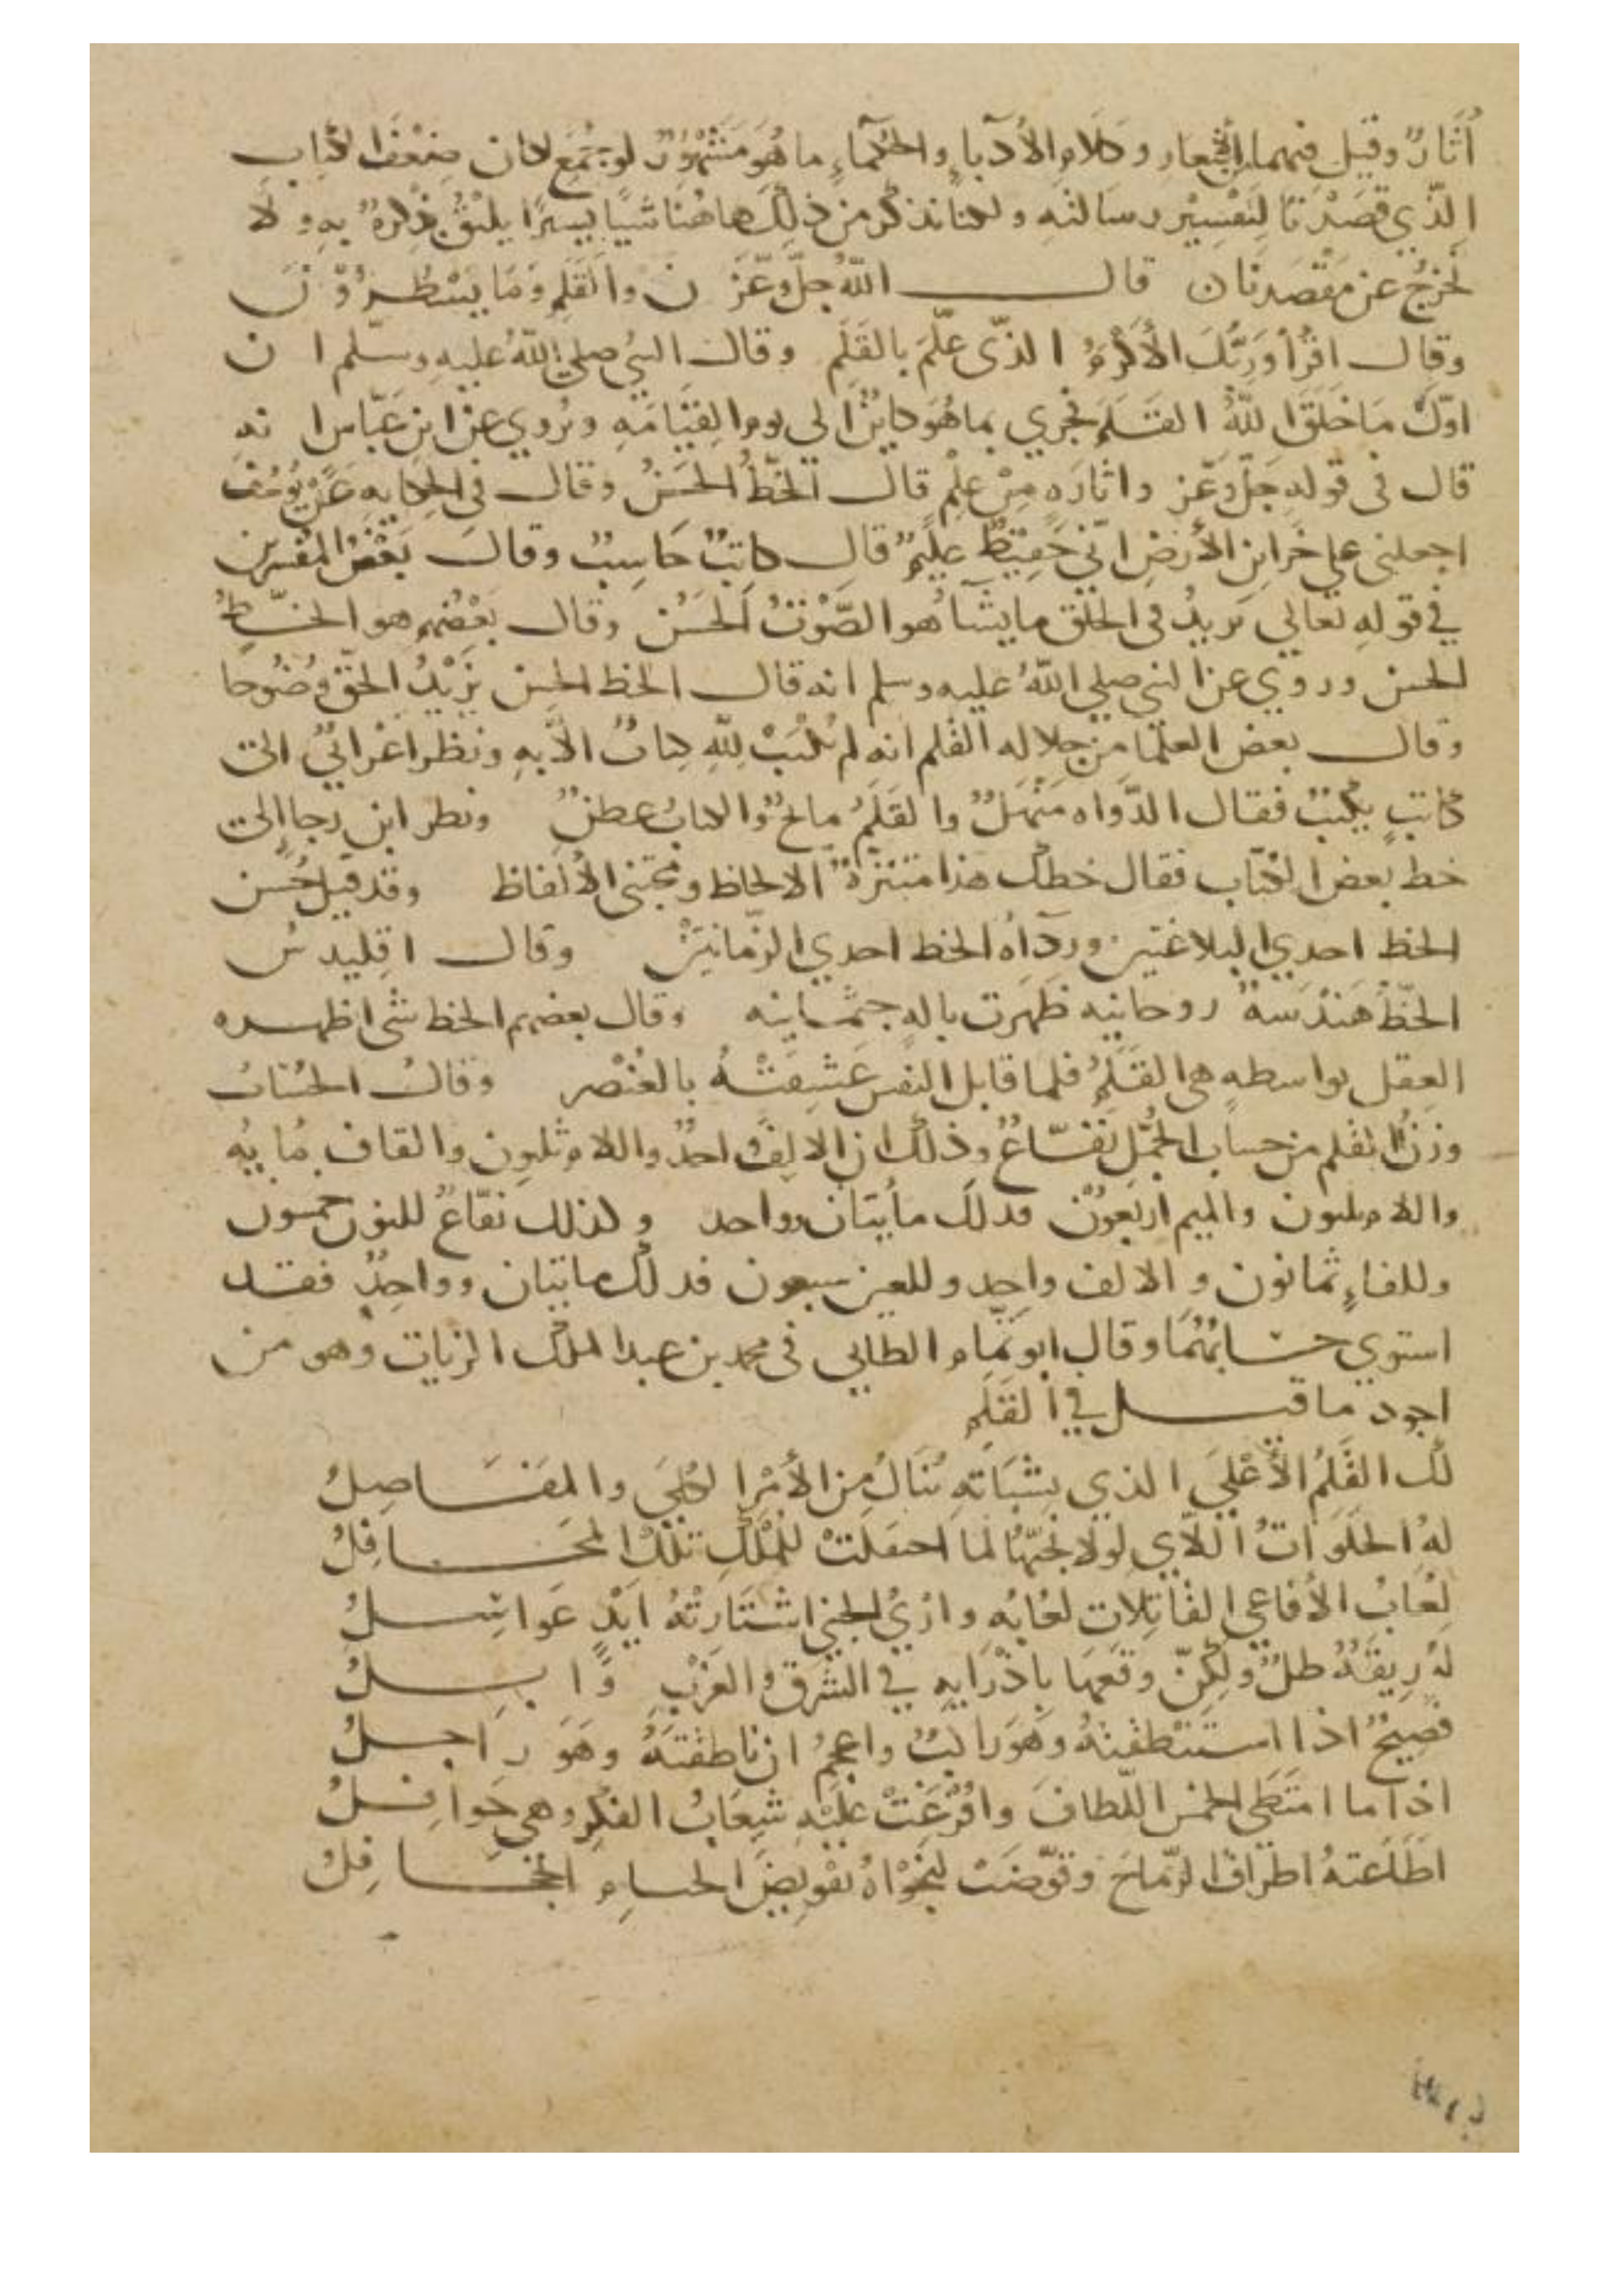 أثارٌ وقيل فيهما من الأشعار وكلام الأدباءِ والحكماءِ ما هُوَ مَشْهُورٌ لو جُمَع لكان ضعْفَ الكتاب
الّذي قصَدْنا لتفْسِيْر رسالته ولكنا نذكر من ذلك هاهُنا شيًا يسيرًا يليْقُ ذِكرهُ بهِ ولا
نخرجُ عن مَقْصَدِنا ن قال اللّهُ جلّ وعَزّ ن والقَلمِ وَمَا يسْطُروْنَ
وقال اقرأ وَرَبّكَ الأكرَمُ الذّي علّمَ بالقَلَمِ وقال النبيُ صلي اللّهُ عليهِ وسلّم ان
اوّلُ مَا خلَقَ اللّهُ القَلَمَ فجري بما هُوَ كاينٌ الي يوم القِيَامَهِ ويُروي عن ابن عَبّاس انهِ
قال في قولهِ جَلّ وعَزّ واثارَهٍ مِنْ عِلْمٍ قال الخطُ الحَسَنُ وقال في الحكايهِ عَنْ يُوسُف
اجعلني علي خزاين الأرضِ انّي حَفِيظٌ عليْمٌ قال كاتِبٌ حَاسِبٌ وقالَ بَعْضُ المفسرين
في قولهِ تعالي يزيدُ في الخلق ما يشَآ هو الصَّوْتُ الحَسَن وقال بَعْضُهم هو الخَطُ
الحسن وروي عن النبي صلي اللّهُ عليه وسلم انه قال الخط الحسن يزيْدُ الحقّ وضُوحا
وقال بعض العلمآ من جلاله القلم انه لم يكتَبْ للّهِ كتابٌ الاّ بهِ ونظر اعْرابيٌ الى
كاتبٍ يكتبُ فقال الدّواه مَنْهَلٌ والقَلَمُ ماتحٌ والكتابُ عطنٌ ونظر ابن رجا الى
خط بعض الكتاب فقال خطك هذا متنزّهٌ الالحاظ ومجتنى الألفاظ وقد قيل حُسن
الخط احدي البلاغتين وردآه الخط احدي الزّمانتيْن وقال اقليدس
الخّطُ هَنْدَسةٌ روحانيه ظهَرت بالهٍ جثْمانيه وقال بعضهم الخط شى اظهره
العقل بواسطهٍ هي القَلَمُ فلما قابل النفس عَشِقَتْهُ بالعُنْصر وقال الحُسّابُ
وزنُ القلم من حساب الجُمّل نفّاعٌ وذلك ان الالِفَ واحدٌ واللام ثلثون والقاف مُايه
واللام ثلثون والميم اربعوُن فذلكَ مأيتان وواحد وكذلك نفّاعٌ للنون خمسون
وللفاءِ ثمانون والالف واحد وللعين سبعون فذلك مايتان وواحدٌ فقد
استوي حسَابهُمَا وقال ابو تمّام الطايي في محمد بن عبد الملك الزيات وهو من
اجود ما قيل في القَلَمِ
لك القَلَمُ الأعْلي الذي بشبَاتهِ تُنَالُ مِن الأمْرِ الكُلَي والمفَاصِلُ
لهُ الخلَوَاتُ اللاّي لولا نجيّهَا لما احتفلَتْ للمُلْكِ تلْكَ المحَافِلُ
لُعابُ الأفاعي القاتِلات لعُابه وارْيُ الجني اشْتَارتْهُ ايْدٍ عَواسِلُ
لهُ رِيقَهٌ طلٌ ولكنّ وقعهَا بآثارِهِ في الشرق والغَرْبِ وَابِلُ
فصِيْحٌ اذا استنطقتهُ وهْوَ راكبٌ واعجمُ ان ناطقتَهُ وهَوَ راجلُ
اذا ما امتَطي الخمس اللّطافَ وافْرِغَتْ عليْهِ شِعَابُ الفِكر وهي حَوافلُ
اطَاعَتهُ اطرافُ الرّماح وقوّضتْ لنجْواهُ تقْويْضَ الخيامِ الجحَافِلُ